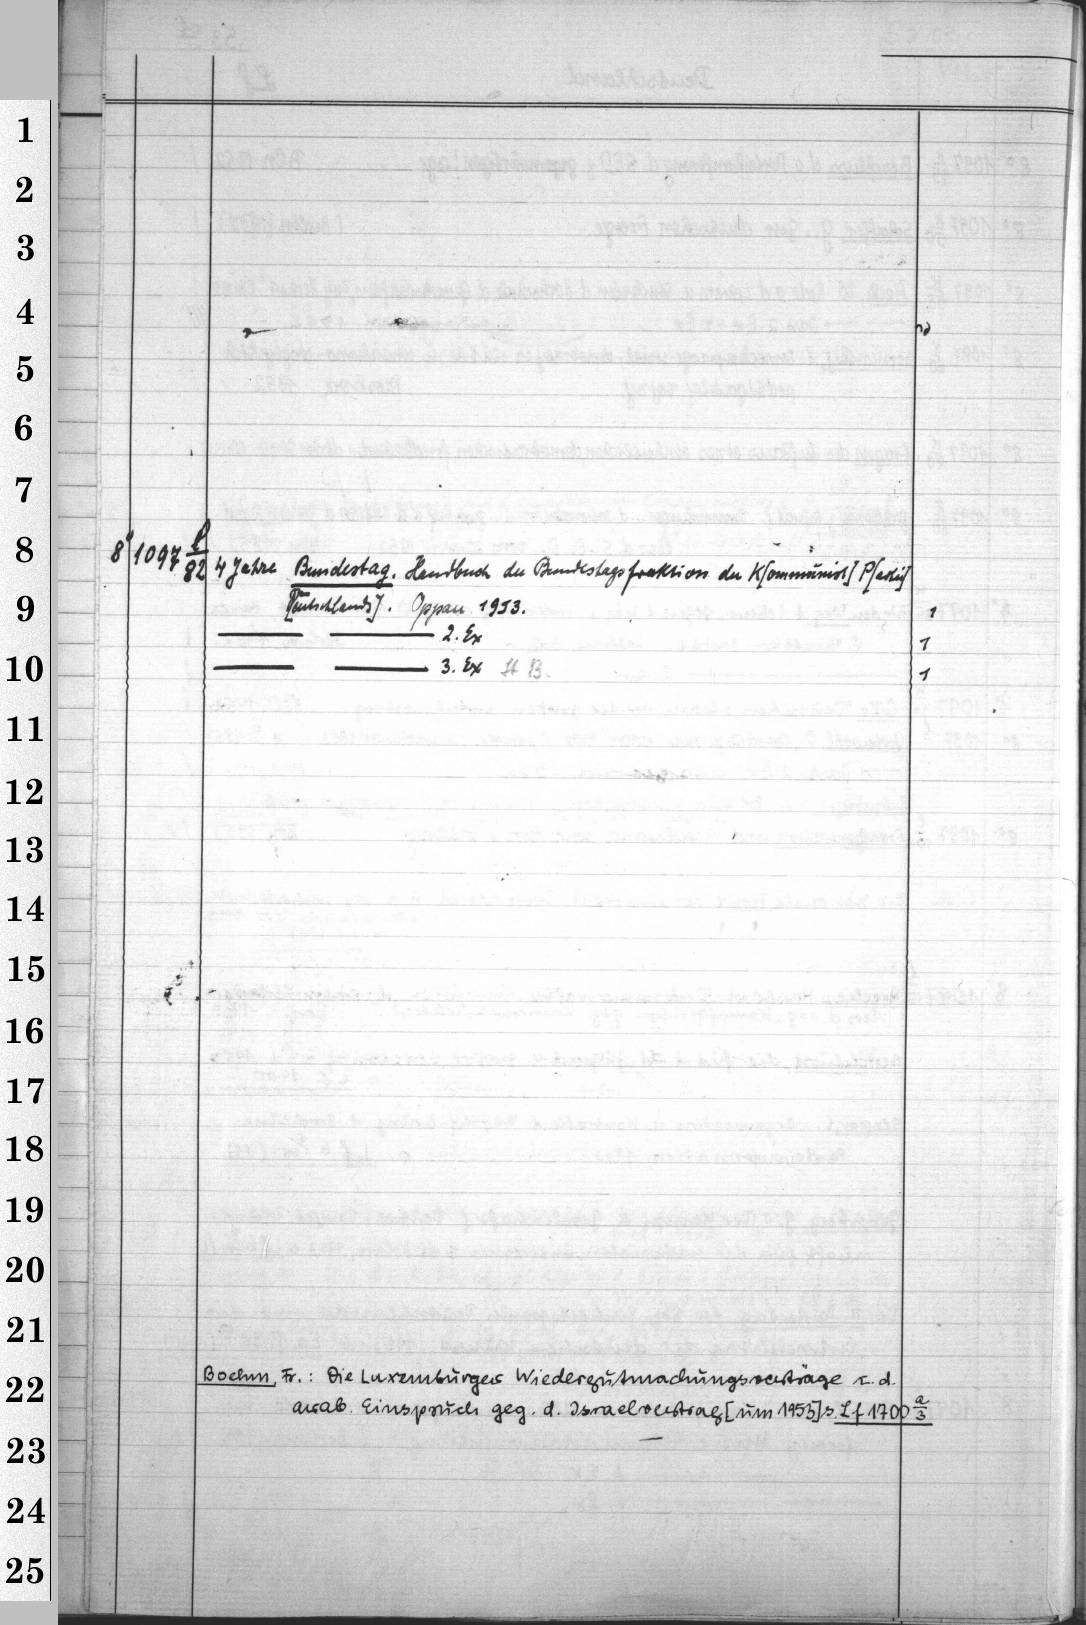 1
2
3
4
5
6
7
8
9
10
11
12
13
14
15
16
17
18
19
20
21
22
23
24
25
8° 1097 f/82 4 Jahre Bundestag. Handbuch der Bundestagsfraktion der K[ommunist] P[artei]
D[eutschlands]. Oppau 1953. 1
——— ——— 2. Ex 1
——— ——— 3. Ex H B. 1
Boehm, Fr.: Die Luxemburger Wiedergutmachungsverträge u. d.
arab. Einspruch geg. d. Israelvertrag [um 1953] s. Lf 1700 a/3